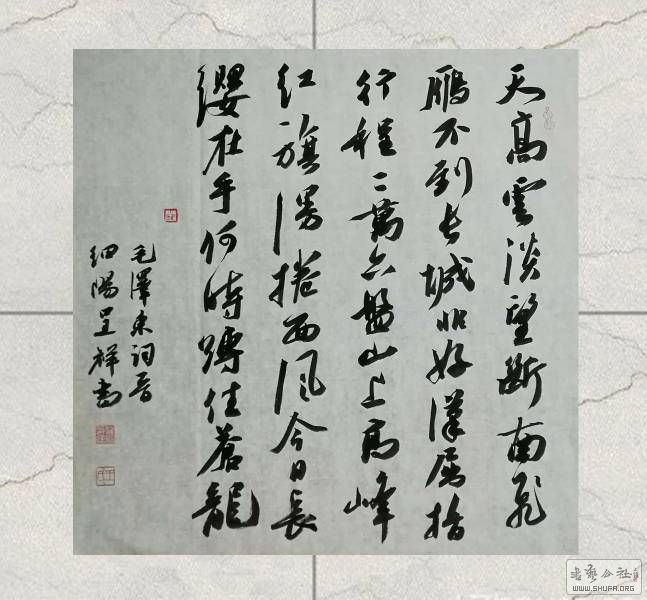 天高雲淡望斷南飛
鴈不到长城非好漢屈指
行程二萬六盤山上高峰
红旗漫捲西風今日長
纓在手何時縛住蒼龍
毛澤东詞一首
细陽呈祥書
書藝公社
WWW.SHUFA.ORG